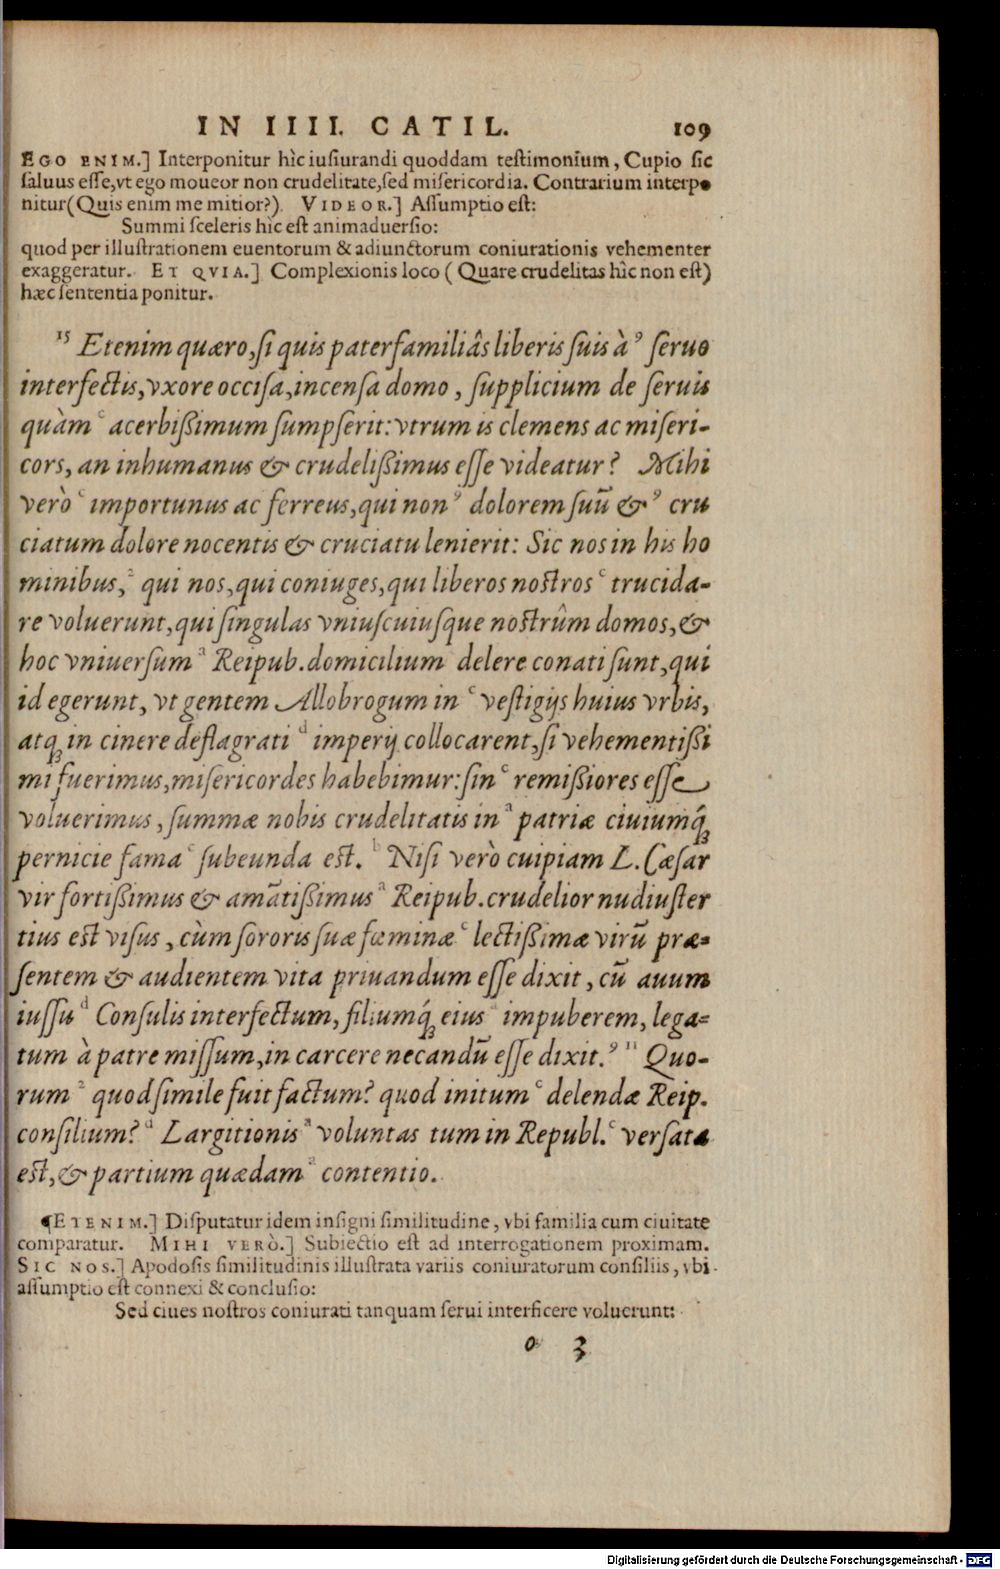 IN IIII. CATIL. 109
EGO ENIM.] Interponitur hîc iusiurandi quoddam testimonium, Cupio sic
saluus esse, vt ego moueor non crudelitate, sed misericordia. Contrarium interpo
nitur (Quis enim me mitior?). VIDEOR.] Assumptio est:
Summi sceleris hîc est animaduersio:
quod per illustrationem euentorum & adiunctorum coniurationis vehementer
exaggeratur. ET QVIA.] Complexionis loco ( Quare crudelitas hîc non est)
hæc sententia ponitur.
15 Etenim quæro, si quis paterfamiliâs liberis suis à 9 seruo
interfectis, vxore occisa, incensa domo, supplicium de seruis
quàm c acerbißimum sumpserit: vtrum is clemens ac miseri-
cors, an inhumanus & crudelißimus esse videatur? Mihi
verò c importunus ac ferreus, qui non 9 dolorem suũ & 9 cru
ciatum dolore nocentis & cruciatu lenierit: Sic nos in his ho
minibus, 2 qui nos, qui coniuges, qui liberos nostros c trucida-
re voluerunt, qui singulas vniuscuiusque nostrûm domos, &
hoc vniuersum a Reipub. domicilium delere conati sunt, qui
id egerunt, vt gentem Allobrogum in c vestigijs huius vrbis,
atq; in cinere deflagrati d imperij collocarent, si vehementißi
mi fuerimus, misericordes habebimur: sin c remißiores esse
voluerimus, summæ nobis crudelitatis in a patriæ ciuiumq́;
pernicie fama c subeunda est. b Nisi verò cuipiam L. Cæsar
vir fortißimus & amãtißimus a Reipub. crudelior nudiuster
tius est visus, cùm sororis suæ fœminæ c lectißimæ virũ præ-
sentem & audientem vita priuandum esse dixit, cũ auum
iussu d Consulis interfectum, filiumq́; eius a impuberem, lega-
tum à patre missum, in carcere necandũ esse dixit. 9 11 Quo-
rum 2 quod simile fuit factum? quod initum c delendæ Reip.
consilium? d Largitionis a voluntas tum in Republ. c versata
est, & partium quædam a contentio.
¶ETENIM.] Disputatur idem insigni similitudine, vbi familia cum ciuitate
comparatur. MIHI VERÒ.] Subiectio est ad interrogationem proximam.
SIC NOS.] Apodosis similitudinis illustrata variis coniuratorum consiliis, vbi
assumptio est connexi & conclusio:
Sed ciues nostros coniurati tanquam serui interficere voluerunt:
o 3
Digitalisierung gefördert durch die Deutsche Forschungsgemeinschaft - DFG